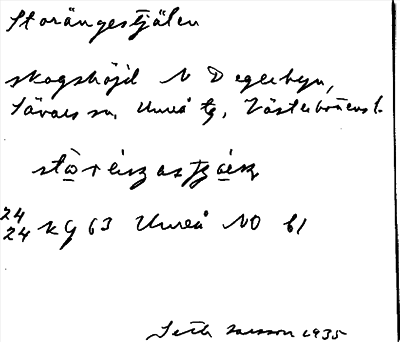 Storängestjälen
skogshöjd N Degerbyn,
Sävars sn, Umeå tg, Västerbottens l.
24
24 kg 63 Umeå NO b1
Seth Larsson 1935